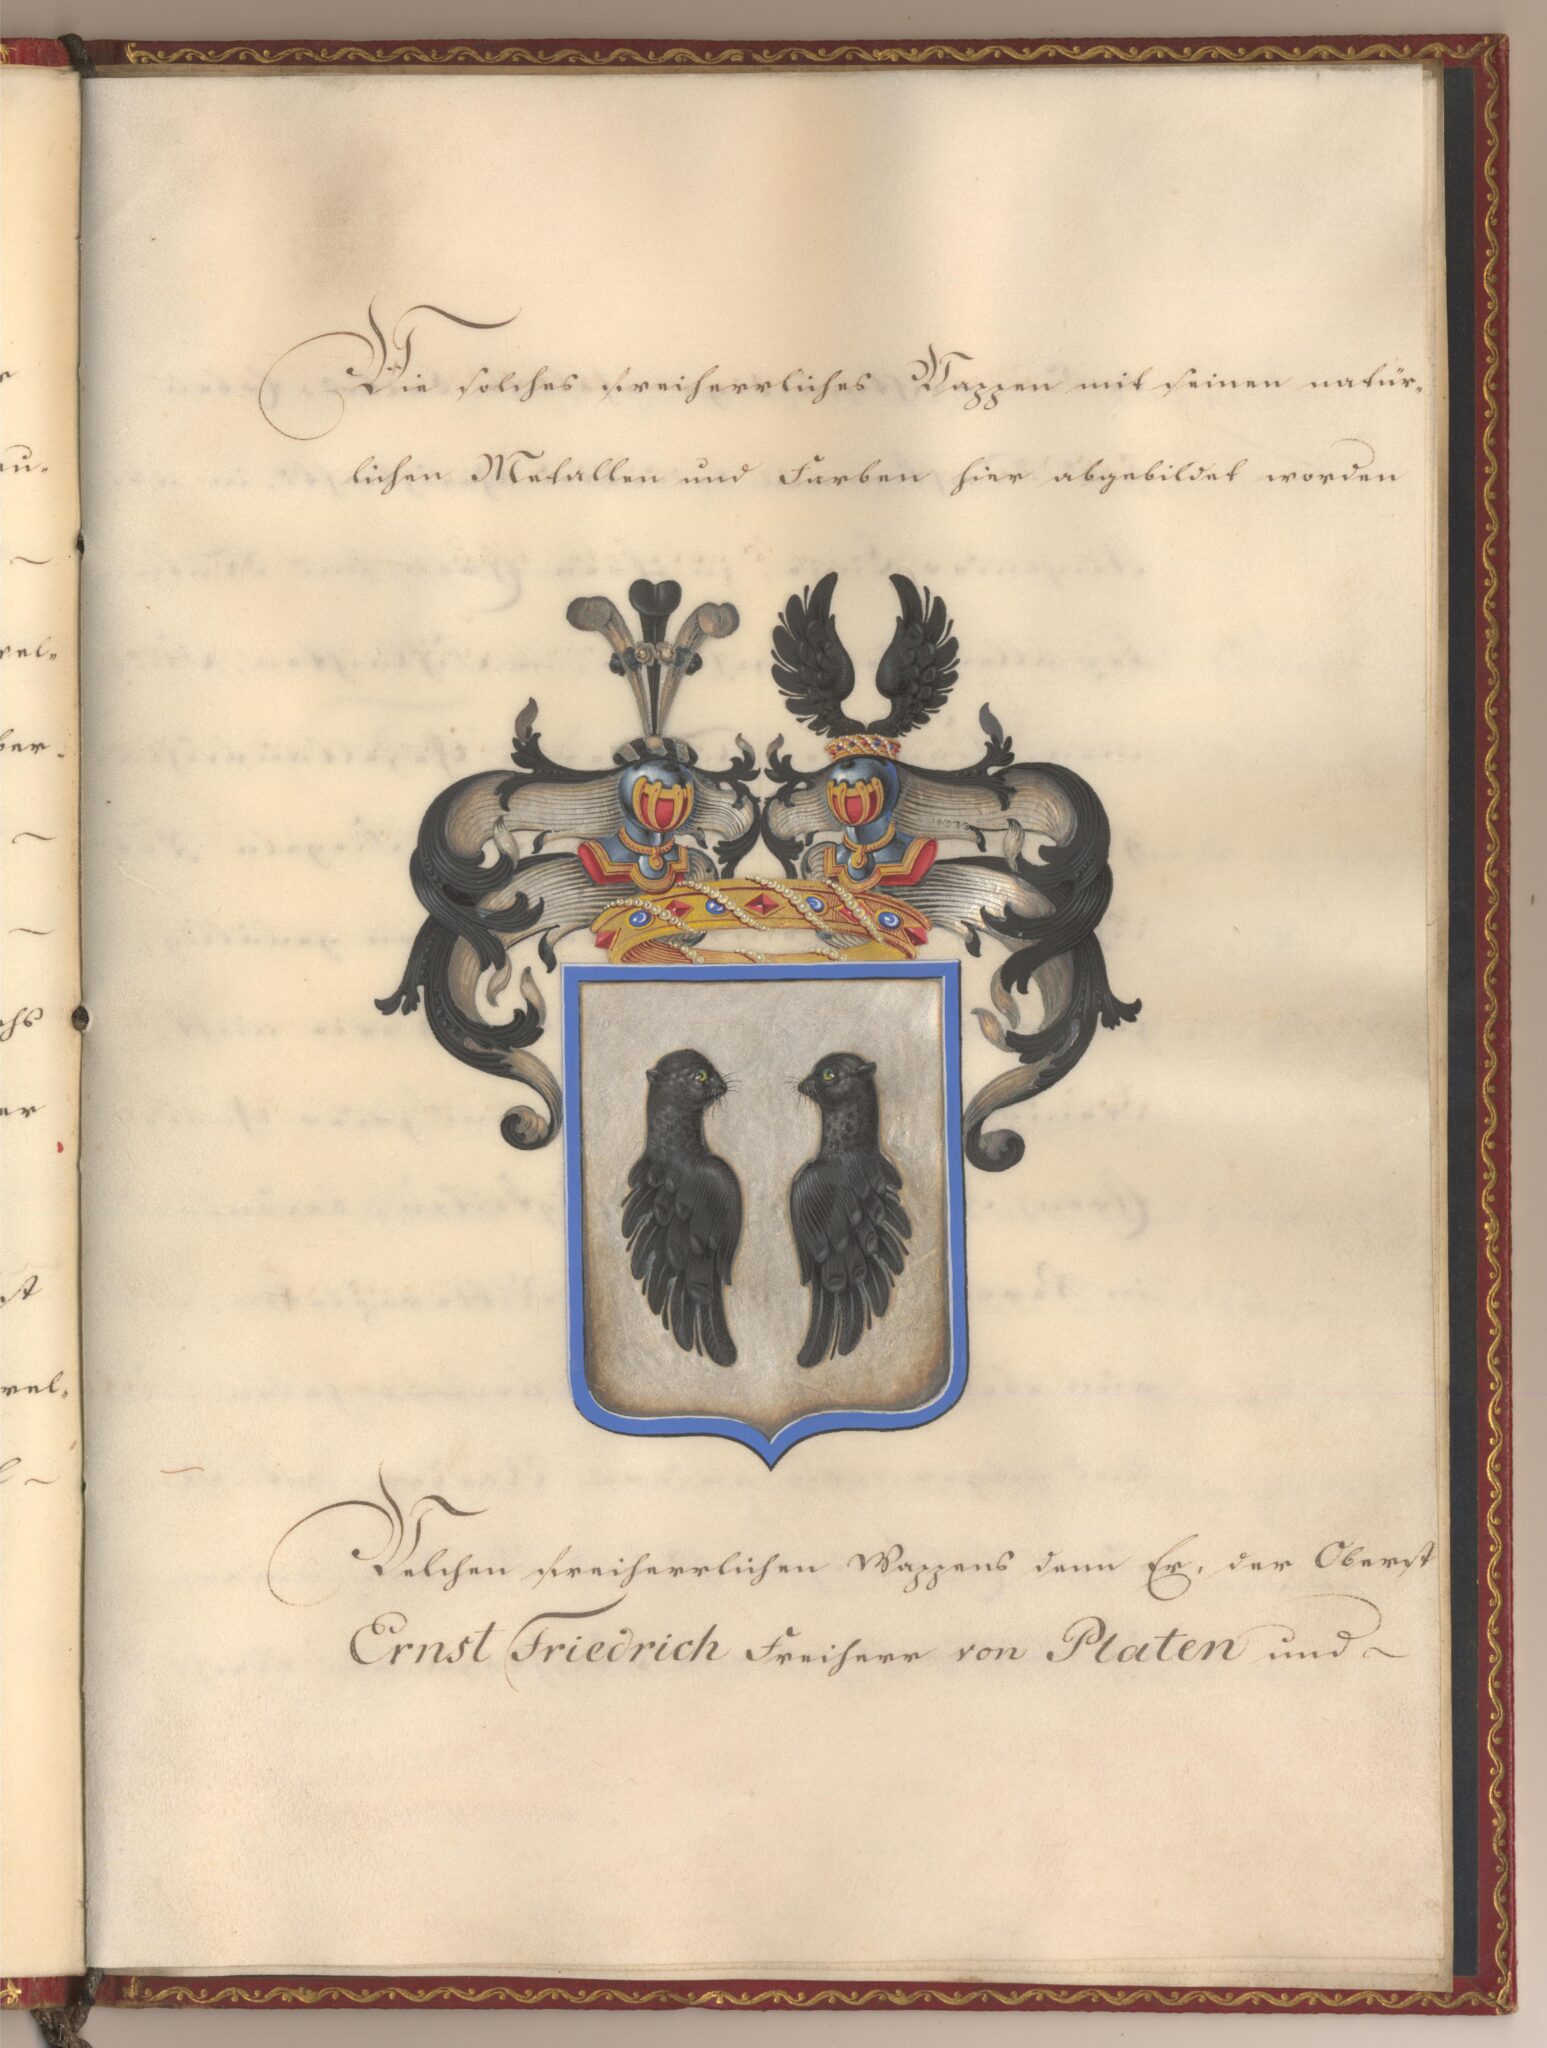 Wie solches freiherrliches Wappen mit seinen natür-
lichen Metallen und Farben hier abgebildet worden
Welchen freiherrlichen Wappens denn Er, der Oberst
Ernst Friedrich Freiherr von Platen und